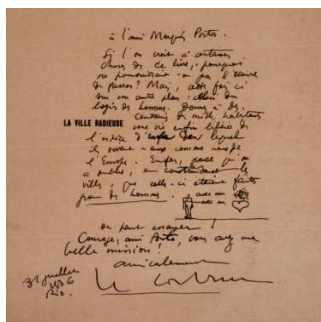 à l'ami Marques Porto.
Si l'on croit à certaines
choses de ce livre, pourquoi
ne
de passer? Mais, cette fois-ci
sur un autre plan: celui des
logis des hommes. Donner à des
centaines de mille habitants
LA VILLE RADIEUSE
une vie enfin libérée de
l'espèce d'enfer dans lequel
ils vivent - eux comme ceux de
l'Europe. Enfer, parce qu'on
a oublié, en construisant les
villes, que celles-ci étaient faites
pour des hommes.
avec un
On peut essayer!
Courage, ami Porto, vous avez une
belle mission!
amicalement
Le Corbusier
31 juillet
1936
Rio.